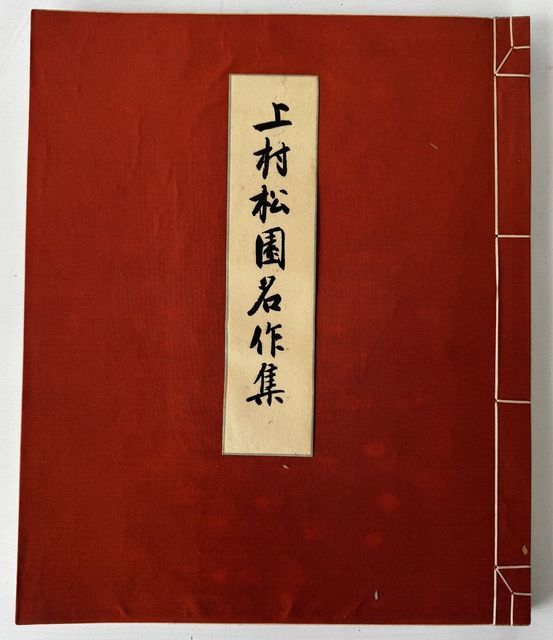 上村松園名作集